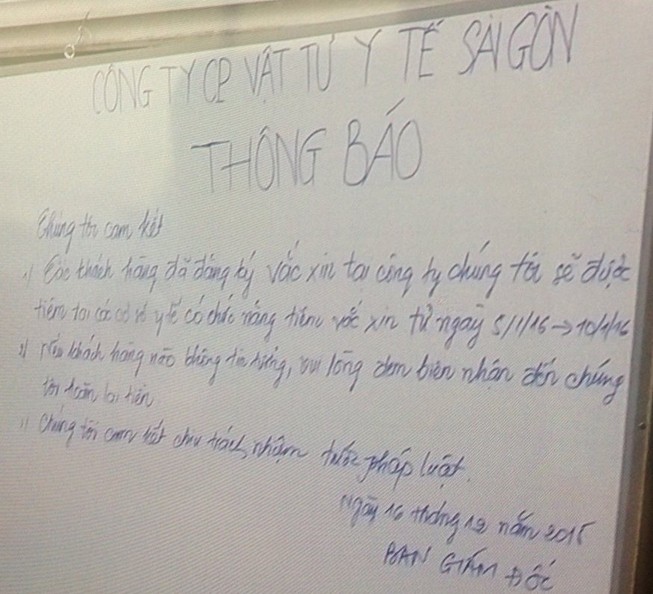 CÔNG TY CP VẬT TƯ Y TẾ SÀI GÒN
THÔNG BÁO
Chúng tôi cam kết
1/ Các khách hàng đã đăng ký vắc xin tại công ty chúng tôi sẽ được
tiêm tại các cơ sở y tế có chức năng tiêm vắc xin từ ngày 5/1/16 → 10/1/16
2/ Nếu khách hàng nào không tin tưởng, vui lòng đem biên nhận đến chúng
tôi hoàn lại tiền
Chúng tôi cam kết chịu trách nhiệm trước pháp luật.
Ngày 16 tháng 12 năm 2015
BAN GIÁM ĐỐC